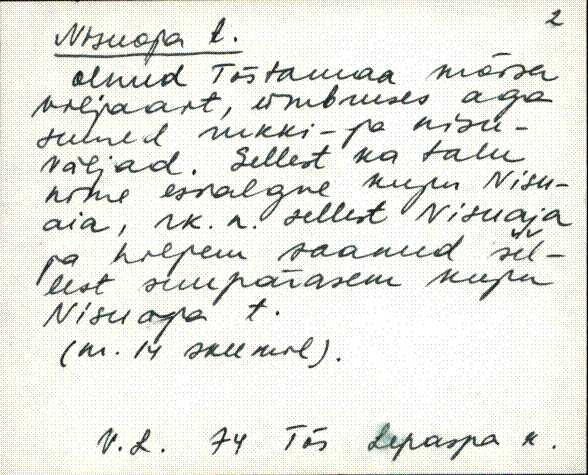 2
Nisuoja t.
olnud Tõstamaa mõisa
viljaait, ümbruses aga
suured rukki- ja nisu-
väljad. Sellest ka talu
nime esialgne kuju Nisu-
aia, rk. n. sellest Nisuaja
ja hiljem saanud sel-
lest suupärasem kuju
Nisuoja t.
(nr. 14 skeemil).
V.L. 74 Tõs Lepaspa k.